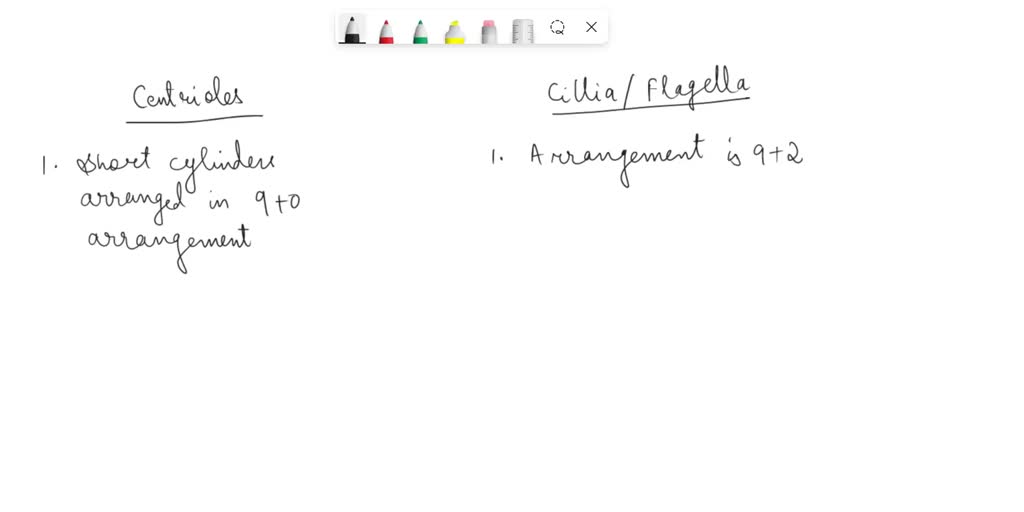 Centrioles
1. Short cylinders
arranged in 9+0
arrangement
Cillia/Flagella
1. Arrangement is 9+2